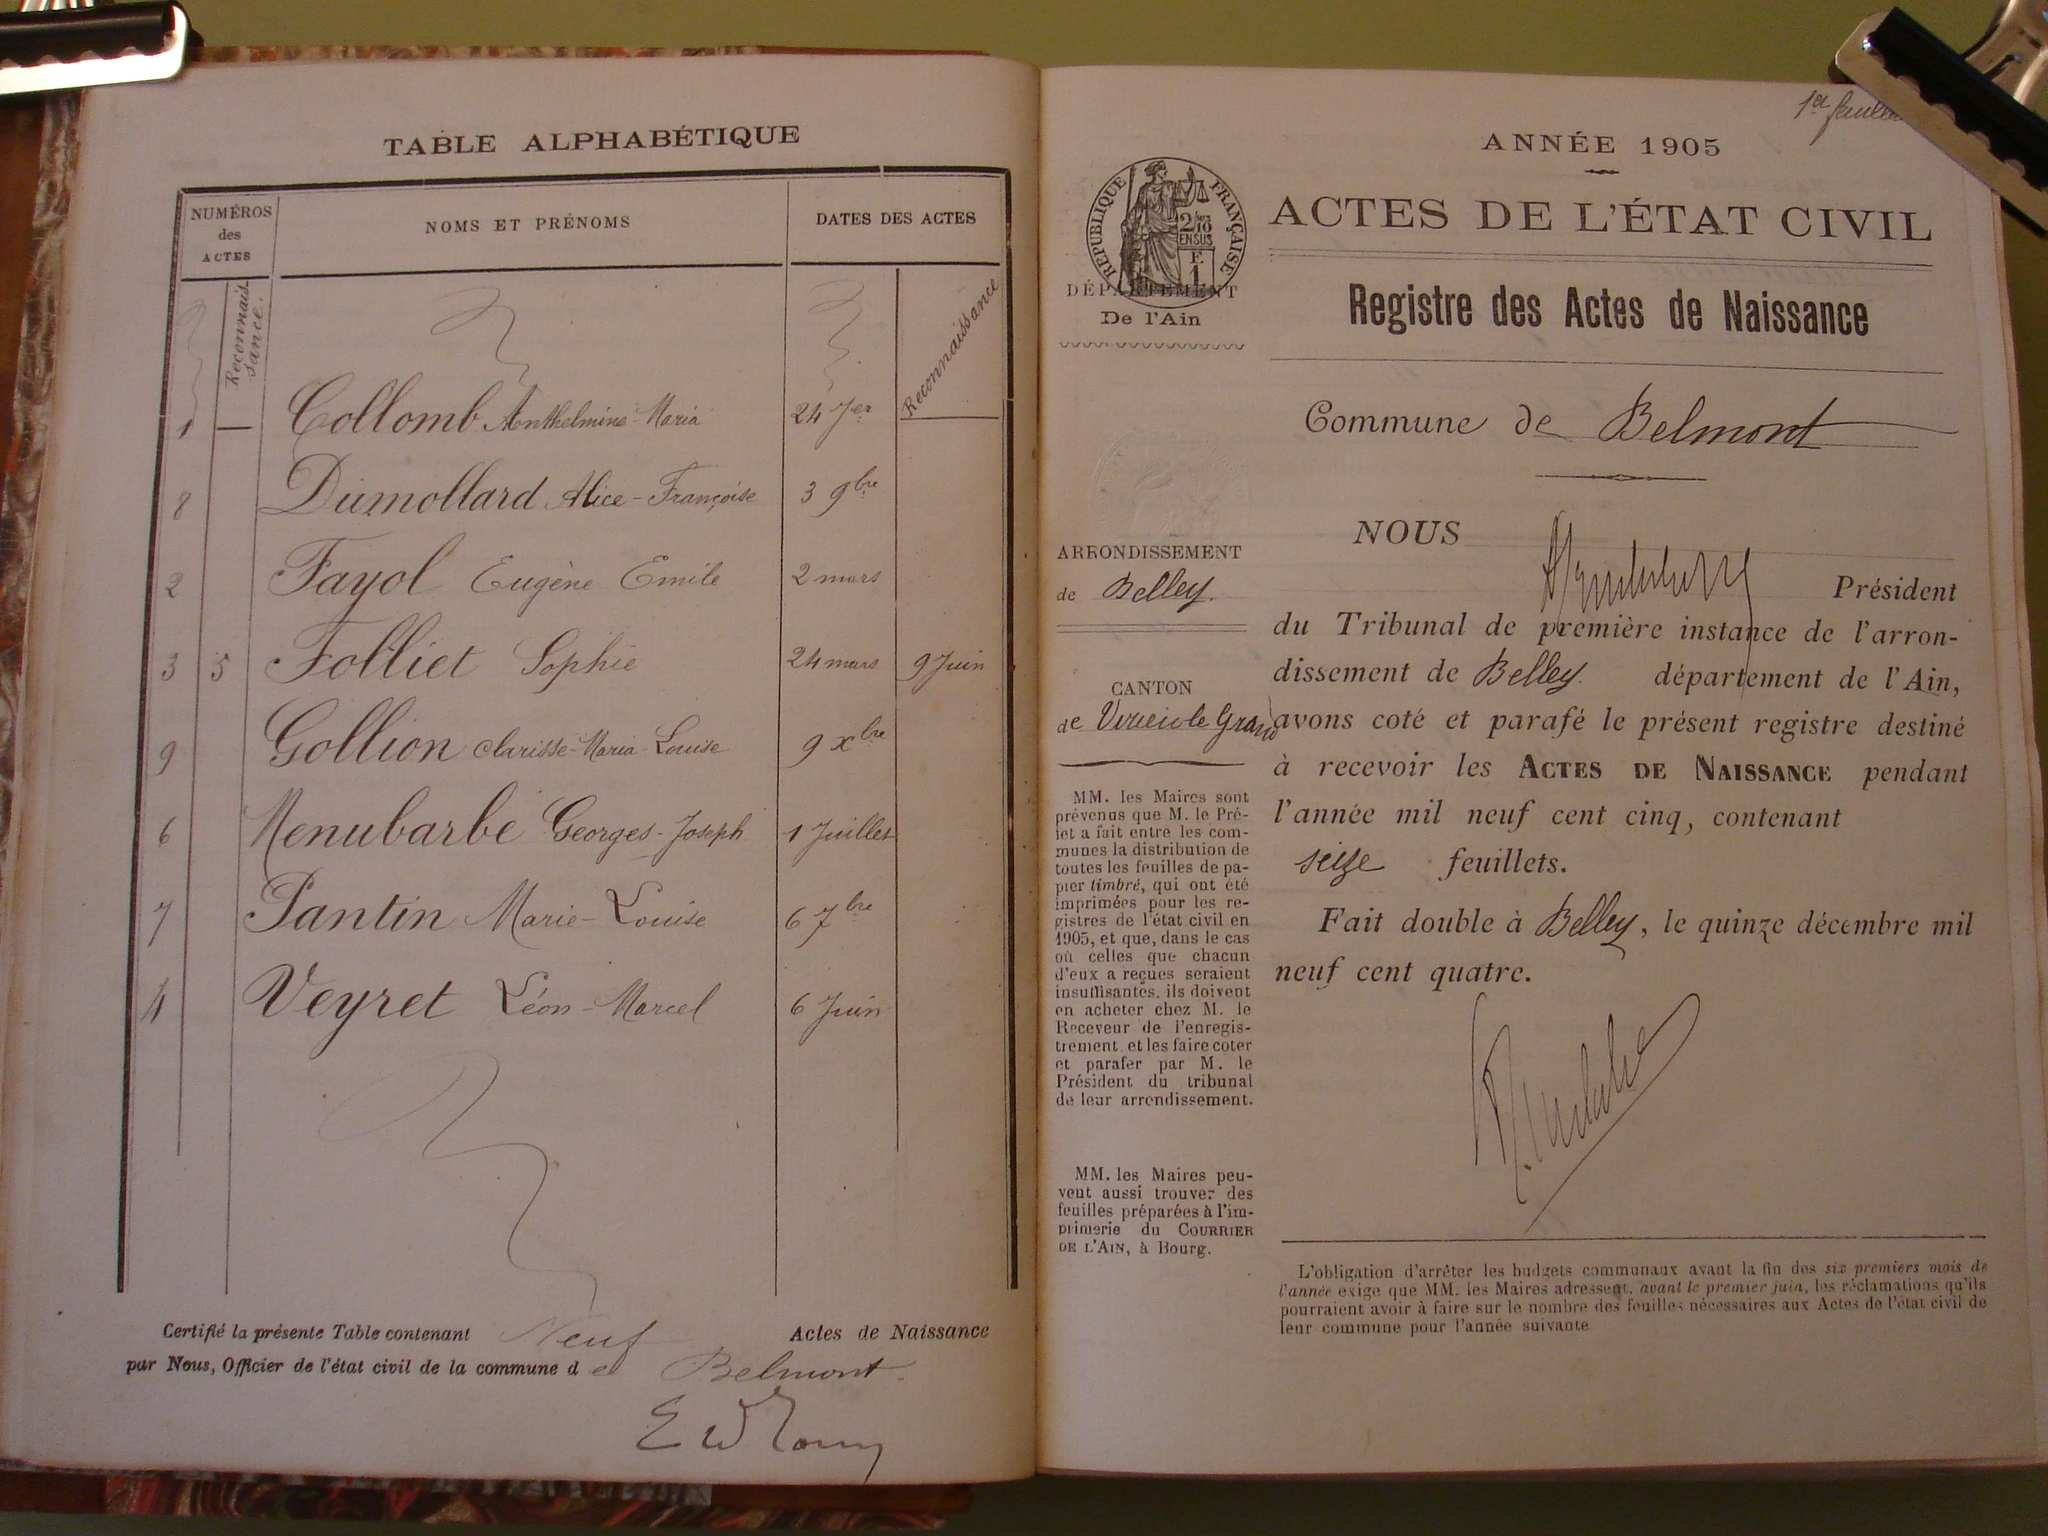 TABLE ALPHABÉTIQUE
NUMÉROS
des
ACTES
NOMS ET PRÉNOMS
DATES DES ACTES
Reconnais
sance.
Reconnaissance
1 — Collomb Anthelmine-Maria 24 Jer
8 Dumollard Alice-Françoise 3 9bre
2 Fayol Eugène Emile 2 mars
3 5 Folliet Sophie 24 mars 9 Juin
9 Gollion Clarisse-Maria-Louise 9 Xbre
6 Menubarbe Georges-Joseph 1 Juillet
7 Pantin Marie-Louise 6 7bre
4 Veyret Léon-Marcel 6 Juin
Certifié la présente Table contenant Neuf Actes de Naissance
par Nous, Officier de l'état civil de la commune de Belmont.
1er
ANNÉE 1905
ACTES DE L'ÉTAT CIVIL
RÉPUBLIQUE FRANÇAISE
2/10
EN SUS
F
1
DÉPARTEMENT
De l'Ain
Registre des Actes de Naissance
Commune de Belmont
ARRONDISSEMENT
de Belley.
CANTON
de Virieu le Grand
MM. les Maires sont
prévenus que M. le Pré-
fet a fait entre les com-
munes la distribution de
toutes les feuilles de pa-
pier timbré, qui ont été
imprimées pour les re-
gistres de l'état civil en
1905, et que, dans le cas
où celles que chacun
d'eux a reçues seraient
insuffisantes, ils doivent
en acheter chez M. le
Receveur de l'enregis-
trement et les faire coter
et parafer par M. le
Président du tribunal
de leur arrondissement.
MM. les Maires peu-
vent aussi trouver des
feuilles préparées à l'im-
primerie du COURRIER
DE L'AIN, à Bourg.
NOUS Président
du Tribunal de première instance de l'arron-
dissement de Belley. département de l'Ain,
avons coté et parafé le présent registre destiné
à recevoir les ACTES DE NAISSANCE pendant
l'année mil neuf cent cinq, contenant
seize feuillets.
Fait double à Belley, le quinze décembre mil
neuf cent quatre.
L'obligation d'arrêter les budgets communaux avant la fin des six premiers mois de
l'année exige que MM. les Maires adressent, avant le premier juin, les réclamations qu'ils
pourraient avoir à faire sur le nombre des feuilles nécessaires aux Actes de l'état civil de
leur commune pour l'année suivante